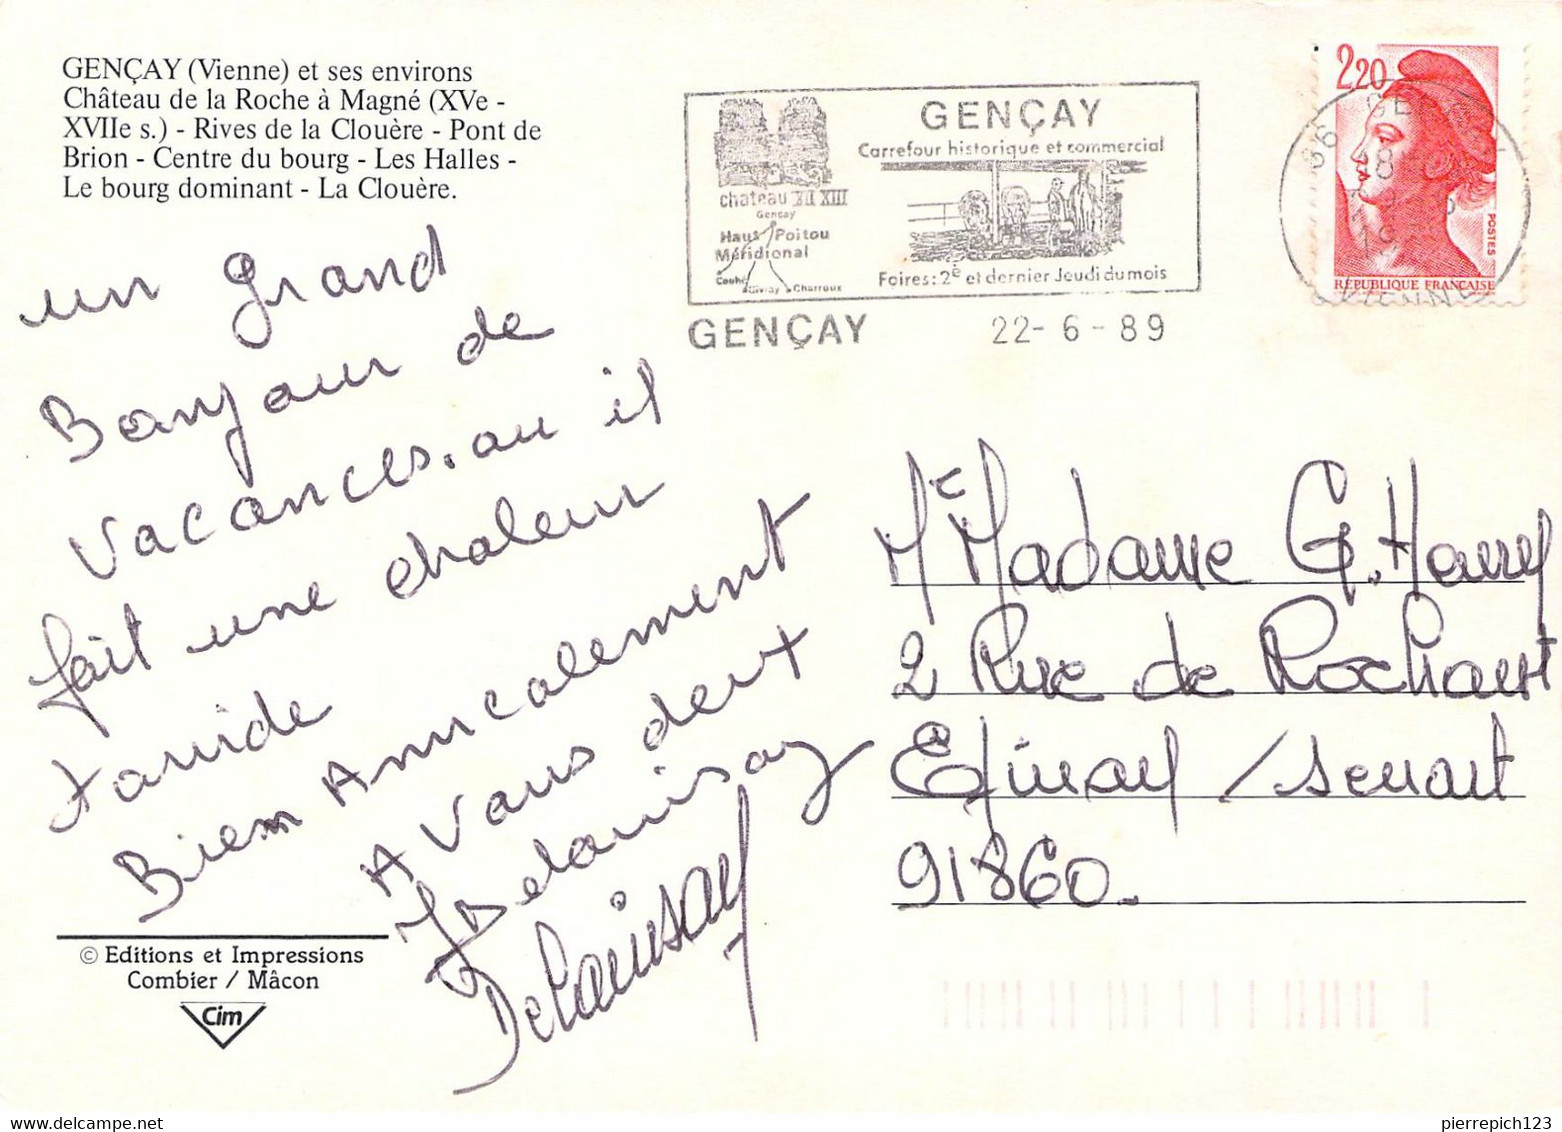 GENÇAY (Vienne) et ses environs
Château de la Roche à Magné (XVe -
XVIIe s.) - Rives de la Clouère - Pont de
Brion - Centre du bourg - Les Halles -
Le bourg dominant - La Clouère.
GENÇAY
Carrefour historique et commercial
chateau XII XIII
Gençay
Haut Poitou
Méridional
Couhé
Civray Charroux
Foires: 2è et dernier Jeudi du mois
GENÇAY 22-6-89
2,20
POSTES
RÉPUBLIQUE FRANÇAISE
86
18
VIENNE
un grand
Bonjour de
vacances. ou il
fait une chaleur
Bien Amicalement
A vous deux
Delaunay
Me Madame G. Harry
2 Rue de
Epinay / Senart
91860.
© Editions et Impressions
Combier / Mâcon
Cim
pierrepich123